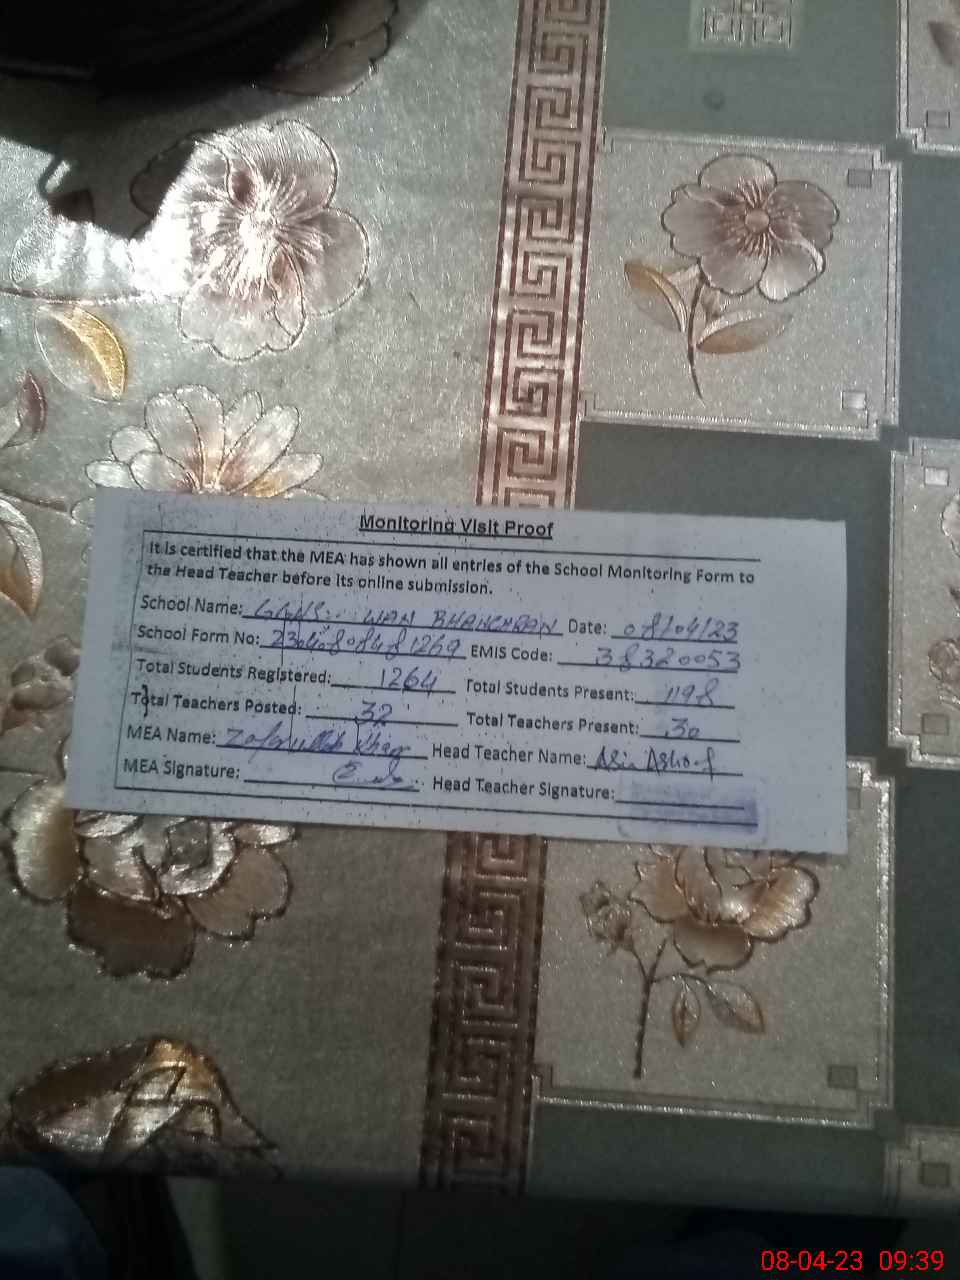 Monitoring Visit Proof
It is certified that the MEA has shown all entries of the School Monitoring Form to
the Head Teacher before its online submission.
School Name: GGHS. WAN BHACHRAN Date: 08/04/23
School Form No: EMIS Code: 38320053
Total Students Registered: 1264 Total Students Present: 1198
Total Teachers Posted: 32 Total Teachers Present: 30
MEA Name: Zafrullah Khan Head Teacher Name: Asia Ashraf
MEA Signature: Head Teacher Signature:
08-04-23 09:39